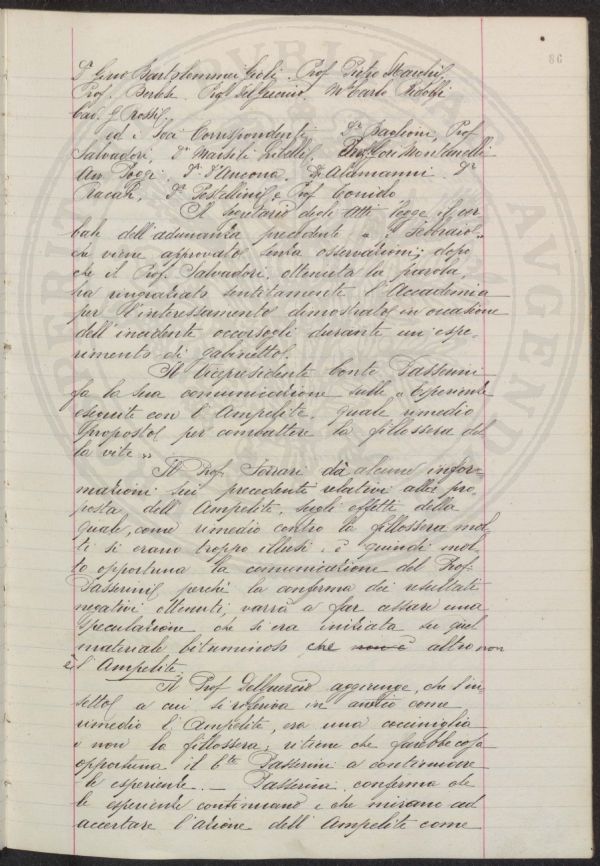 86
Dr Gino Bartolommei Gioli. Prof Pietro Marchi,
Prof. Bertoli. Prof Del Guercio. Mse Carlo Ridolfi
Cav. G. Rossi.
ed i Soci Corrispondenti Dr Baglioni, Prof
Salvadori, Dr Marsili Libelli, Montanelli
Poggi. Dr D'Ancona. Dr Alamanni. Dr
Racah, Dr Pestellini e Prof Conido
Il Segretario degli Atti legge il ver-
bale dell'adunanza precedente
che viene approvato senza osservazioni; dopo
che il Prof. Salvadori, ottenuta la parola,
ha ringraziato sentitamente l'Accademia
per l'interessamento dimostrato in occasione
dell'incidente occorsogli durante un espe-
rimento di gabinetto.
Il Vicepresidente Conte Passerini
fa la sua comunicazione sulle "Esperienze
eseguite con l'Ampelite, quale rimedio
proposto per combattere la fillossera del
la vite"
Il Prof. Ferrari dà alcune infor-
mazioni sui precedenti relativi alla pro-
posta dell'Ampelite, sugli effetti della
quale, come rimedio contro la fillossera mol-
ti si erano troppo illusi. è quindi mol-
to opportuna la comunicazione del Prof.
Passerini perchè la conferma dei resultati
negativi ottenuti, varrà a far cessare una
speculazione che si era iniziata su quel
materiale bituminoso che non è altro non
è l'Ampelite.
Il Prof Delguercio aggiunge, che l'in-
setto a cui si riferiva in antico come
rimedio l'Ampelite, era una cocciniglia
e non la fillossera; ritiene che farebbe cosa
opportuna il Cte Passerini a continuare
le esperienze. — Passerini conferma che
le esperienze continuano e che mirano ad
accertare l'azione dell'Ampelite come